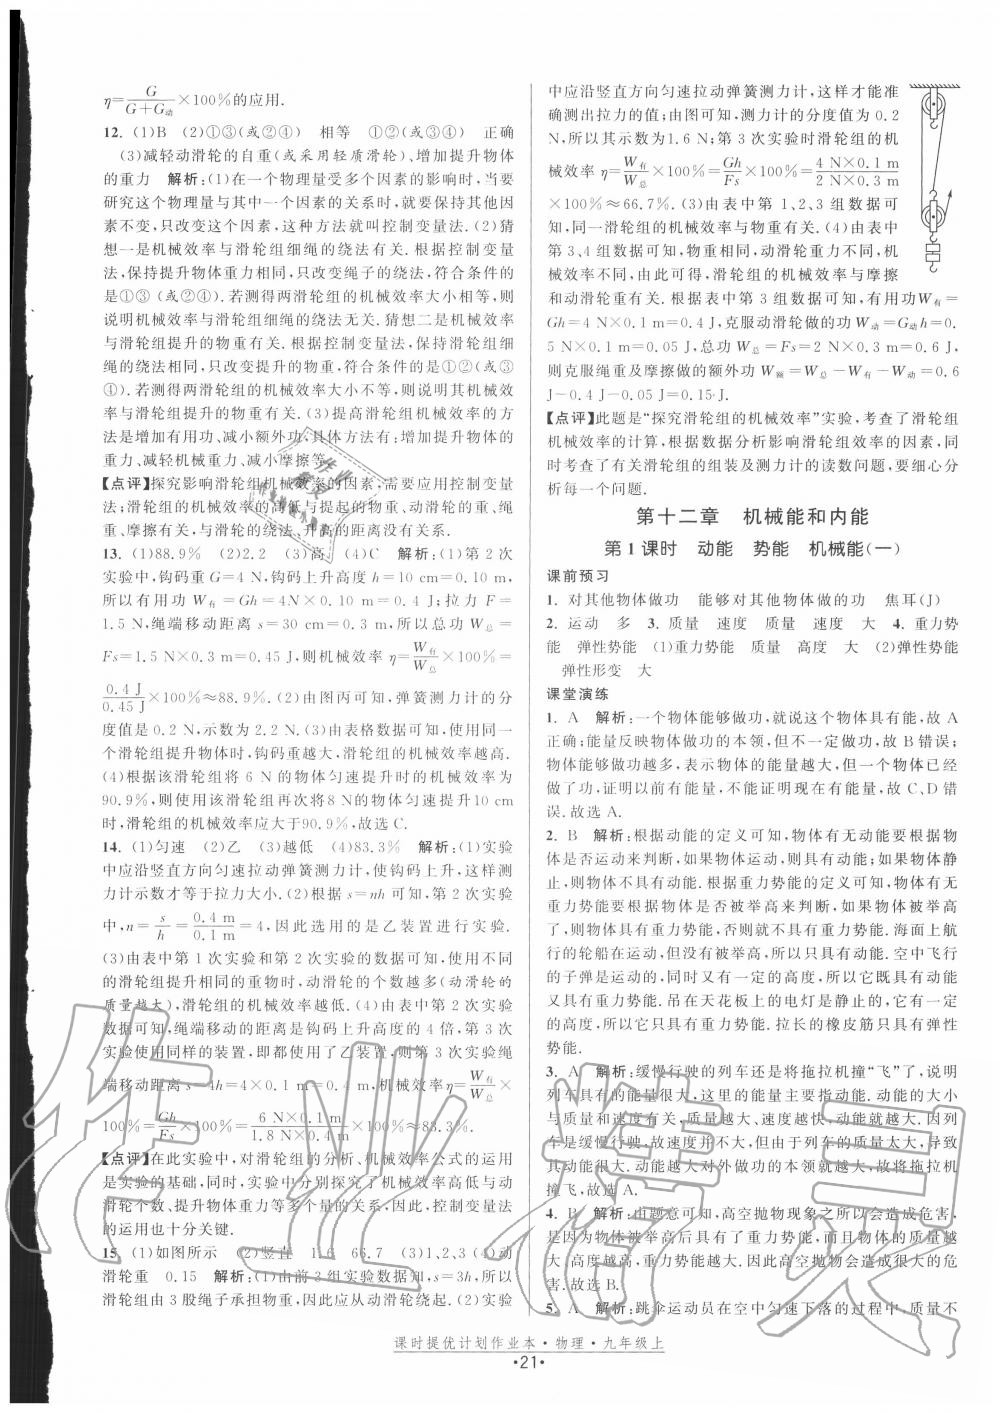 η=G/(G+G动)×100%的应用.
12. (1)B (2)①③(或②④) 相等 ①②(或③④) 正确
(3)减轻动滑轮的自重(或采用轻质滑轮)、增加提升物体
的重力 解析:(1)在一个物理量受多个因素的影响时,当要
研究这个物理量与其中一个因素的关系时,就要保持其他因
素不变,只改变这个因素,这种方法就叫控制变量法.(2)猜
想一是机械效率与滑轮组细绳的绕法有关.根据控制变量
法,保持提升物体重力相同,只改变绳子的绕法,符合条件的
是①③(或②④).若测得两滑轮组的机械效率大小相等,则
说明机械效率与滑轮组细绳的绕法无关.猜想二是机械效率
与滑轮组提升的物重有关.根据控制变量法,保持滑轮组细
绳的绕法相同,只改变提升的物重,符合条件的是①②(或③
④).若测得两滑轮组的机械效率大小不等,则说明机械效率
与滑轮组提升的物重有关.(3)提高滑轮组机械效率的方法
是增加有用功、减小额外功,具体方法有:增加提升物体的
重力、减轻机械重、减小摩擦等.
【点评】探究影响滑轮组机械效率的因素,需要应用控制变量
法;滑轮组的机械效率的高低与提起的物重、动滑轮的重、绳
重、摩擦有关,与滑轮的绕法、升高的距离没有关系.
13. (1)88.9% (2)2.2 (3)高 (4)C 解析:(1)第2次
实验中,钩码重G=4 N,钩码上升高度h=10 cm=0.10 m,
所以有用功W有=Gh=4N×0.10 m=0.4 J;拉力F=
1.5 N,绳端移动距离s=30 cm=0.3 m,所以总功W总=
Fs=1.5 N×0.3 m=0.45 J,则机械效率η=W有/W总×100%=
0.4 J/0.45 J×100%≈88.9%.(2)由图丙可知,弹簧测力计的分
度值是0.2 N,示数为2.2 N.(3)由表格数据可知,使用同一
个滑轮组提升物体时,钩码重越大,滑轮组的机械效率越高.
(4)根据该滑轮组将6 N的物体匀速提升时的机械效率为
90.9%,则使用该滑轮组再次将8 N的物体匀速提升10 cm
时,滑轮组的机械效率应大于90.9%,故选C.
14. (1)匀速 (2)乙 (3)越低 (4)83.3% 解析:(1)实验
中应沿竖直方向匀速拉动弹簧测力计,使钩码上升,这样测
力计示数才等于拉力大小.(2)根据s=nh可知,第2次实验
中,n=s/h=0.4 m/0.1 m=4,因此选用的是乙装置进行实验.
(3)由表中第1次实验和第2次实验的数据可知,使用不同
的滑轮组提升相同的重物时,动滑轮的个数越多(动滑轮的
质量越大),滑轮组的机械效率越低.(4)由表中第2次实验
数据可知,绳端移动的距离是钩码上升高度的4倍,第3次
实验使用同样的装置,即都使用了乙装置,则第3次实验绳
端移动距离s=4h=4×0.1 m=0.4 m,机械效率η=W有/W总×
100%=Gh/Fs×100%=6 N×0.1 m/1.8 N×0.4 m×100%≈83.3%.
【点评】在此实验中,对滑轮组的分析、机械效率公式的运用
是实验的基础,同时,实验中分别探究了机械效率高低与动
滑轮个数、提升物体重力等多个量的关系,因此,控制变量法
的运用也十分关键.
15. (1)如图所示 (2)竖直 1.6 66.7 (3)1,2,3 (4)动
滑轮重 0.15 解析:(1)由前3组实验数据知,s=3h,所以
滑轮组由3股绳子承担物重,因此应从动滑轮绕起.(2)实验
中应沿竖直方向匀速拉动弹簧测力计,这样才能准
确测出拉力的值;由图可知,测力计的分度值为0.2
N,所以其示数为1.6 N;第3次实验时滑轮组的机
械效率η=W有/W总×100%=Gh/Fs×100%=4 N×0.1 m/2 N×0.3 m
×100%≈66.7%.(3)由表中第1、2、3组数据可
知,同一滑轮组的机械效率与物重有关.(4)由表中
第3、4组数据可知,物重相同,动滑轮重力不同,机
械效率不同,由此可得,滑轮组的机械效率与摩擦
和动滑轮重有关.根据表中第3组数据可知,有用功W有=
Gh=4 N×0.1 m=0.4 J,克服动滑轮做的功W动=G动h=0.
5 N×0.1 m=0.05 J,总功W总=Fs=2 N×0.3 m=0.6 J,
则克服绳重及摩擦做的额外功W额=W总-W有-W动=0.6
J-0.4 J-0.05 J=0.15 J.
【点评】此题是“探究滑轮组的机械效率”实验,考查了滑轮组
机械效率的计算,根据数据分析影响滑轮组效率的因素,同
时考查了有关滑轮组的组装及测力计的读数问题,要细心分
析每一个问题.
第十二章 机械能和内能
第1课时 动能 势能 机械能(一)
课前预习
1. 对其他物体做功 能够对其他物体做的功 焦耳(J)
2. 运动 多 3. 质量 速度 质量 速度 大 4. 重力势
能 弹性势能 (1)重力势能 质量 高度 大 (2)弹性势能
弹性形变 大
课堂演练
1. A 解析:一个物体能够做功,就说这个物体具有能,故A
正确;能量反映物体做功的本领,但不一定做功,故B错误;
物体能够做功越多,表示物体的能量越大,但一个物体已经
做了功,证明以前有能量,不能证明现在有能量,故C、D错
误.故选A.
2. B 解析:根据动能的定义可知,物体有无动能要根据物体
是否运动来判断,如果物体运动,则具有动能;如果物体静
止,则物体不具有动能.根据重力势能的定义可知,物体有无
重力势能要根据物体是否被举高来判断,如果物体被举高
了,则物体具有重力势能,否则就不具有重力势能.海面上航
行的轮船在运动,但没有被举高,所以只具有动能.空中飞行
的子弹是运动的,同时又有一定的高度,所以它既具有动能
又具有重力势能.吊在天花板上的电灯是静止的,它有一定
的高度,所以它只具有重力势能.拉长的橡皮筋只具有弹性
势能.
3. A 解析:缓慢行驶的列车还是将拖拉机撞“飞”了,说明
列车具有的能量很大,这里的能量主要指动能.动能的大小
与质量和速度有关,质量越大、速度越快,动能就越大.因列
车是缓慢行驶,故速度并不大,但由于列车的质量太大,导致
其动能很大.动能越大对外做功的本领就越大,故将拖拉机
撞飞,故选A.
4. B 解析:由题意可知,高空抛物现象之所以会造成危害,
是因为物体被举高后具有了重力势能,而且物体的质量越
大、高度越高,重力势能越大.因此高空抛物会造成很大的危
害.故选B.
5. A 解析:跳伞运动员在空中匀速下落的过程中,质量不
课时提优计划作业本·物理·九年级上
·21·